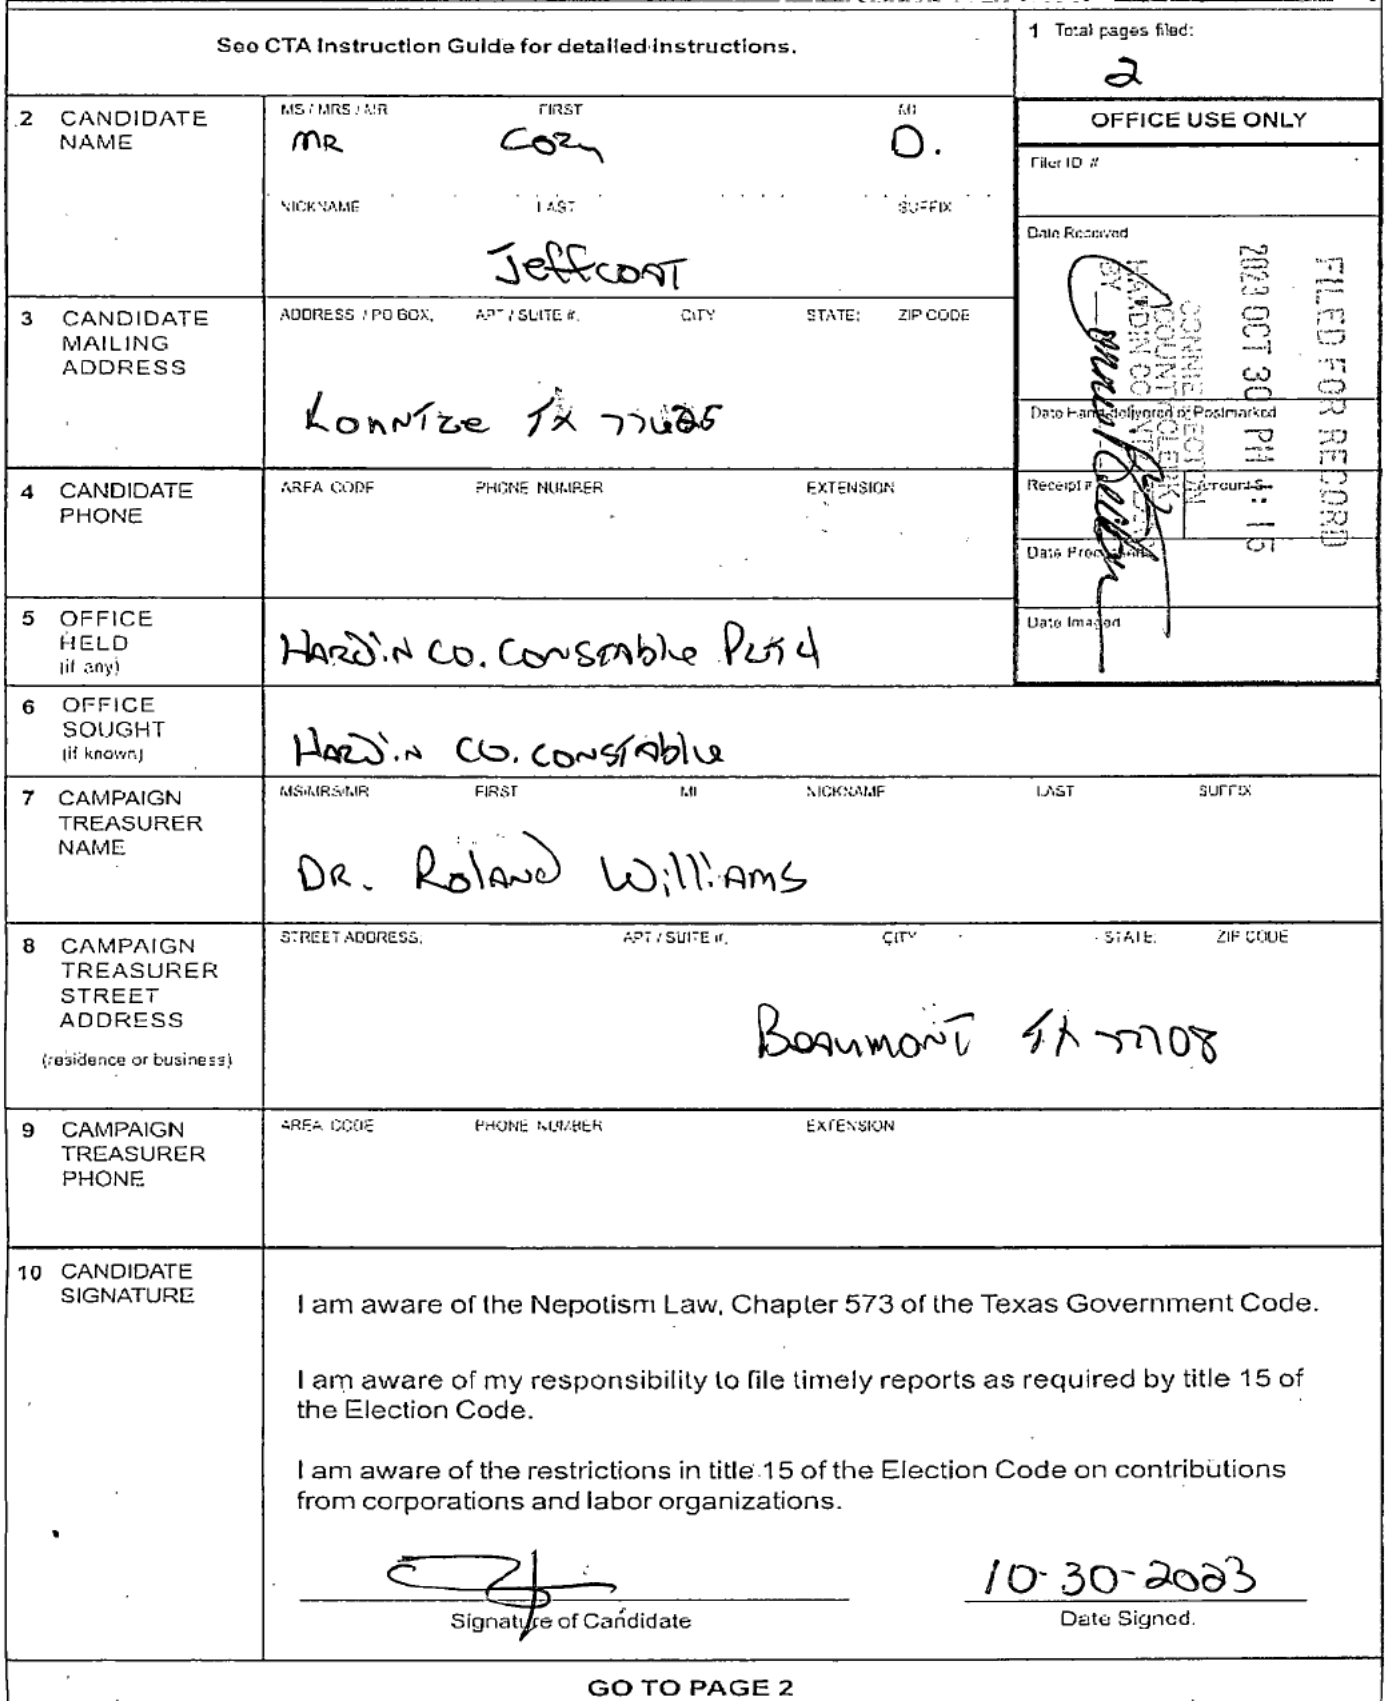 See CTA Instruction Guide for detailed instructions.
1 Total pages filed:
2
2 CANDIDATE NAME
MS / MRS / MR FIRST MI
MR Cozy D.
NICKNAME LAST SUFFIX
Jeffcoat
OFFICE USE ONLY
Filer ID #
Date Received
FILED FOR RECORD
2023 OCT 30 PM 1:15
CONNIE BECTON
COUNTY CLERK
HARDIN COUNTY
BY
Date Hand-delivered or Postmarked
Receipt # Amount $
Date Processed
Date Imaged
3 CANDIDATE MAILING ADDRESS
ADDRESS / PO BOX; APT / SUITE #; CITY STATE; ZIP CODE
Kountze TX 77625
4 CANDIDATE PHONE
AREA CODE PHONE NUMBER EXTENSION
5 OFFICE HELD (if any)
HARDIN CO. CONSTABLE Pct 4
6 OFFICE SOUGHT (if known)
HARDIN CO. CONSTABLE
7 CAMPAIGN TREASURER NAME
MS/MRS/MR FIRST MI NICKNAME LAST SUFFIX
DR. Roland Williams
8 CAMPAIGN TREASURER STREET ADDRESS
(residence or business)
STREET ADDRESS; APT / SUITE #; CITY STATE; ZIP CODE
Beaumont TX 77708
9 CAMPAIGN TREASURER PHONE
AREA CODE PHONE NUMBER EXTENSION
10 CANDIDATE SIGNATURE
I am aware of the Nepotism Law, Chapter 573 of the Texas Government Code.
I am aware of my responsibility to file timely reports as required by title 15 of
the Election Code.
I am aware of the restrictions in title 15 of the Election Code on contributions
from corporations and labor organizations.
10-30-2023
Signature of Candidate Date Signed
GO TO PAGE 2